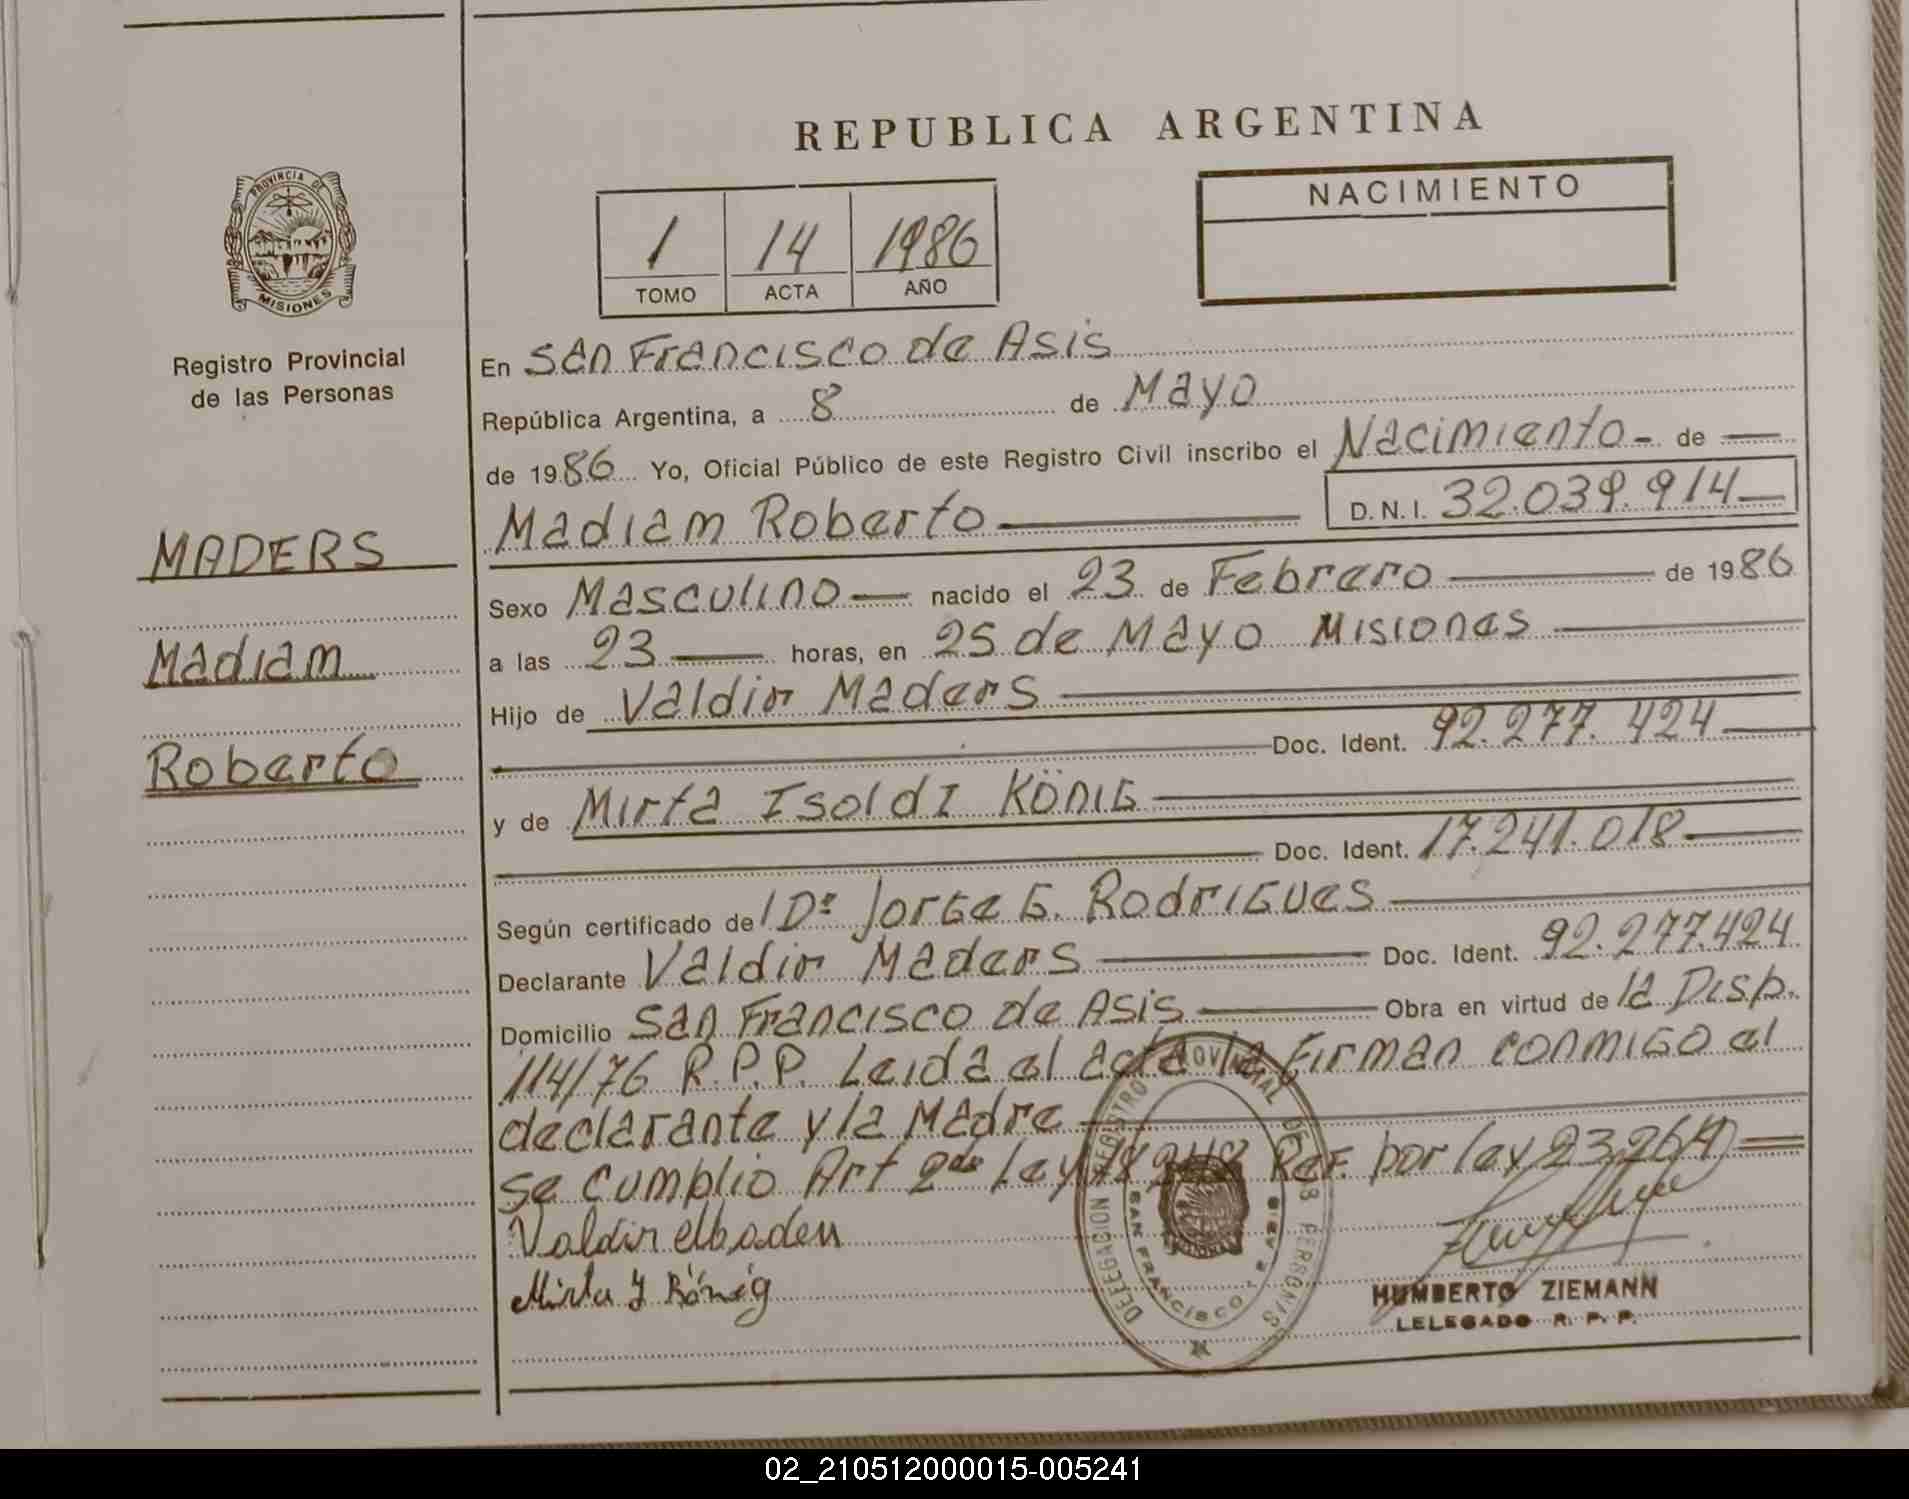 REPUBLICA ARGENTINA
PROVINCIA DE
MISIONES
Registro Provincial
de las Personas
MADERS
Madiam
Roberto
1 14 1986
TOMO ACTA AÑO
NACIMIENTO
En San Francisco de Asis
República Argentina, a 8 de Mayo
de 1986 Yo, Oficial Público de este Registro Civil inscribo el Nacimiento - de —
Madiam Roberto — D.N.I. 32.039.914 —
Sexo Masculino — nacido el 23 de Febrero — de 1986
a las 23 — horas, en 25 de Mayo Misiones —
Hijo de Valdir Maders —
Doc. Ident. 92.277.424 —
y de Mirta Isoldi König —
Doc. Ident. 17.241.018 —
Según certificado del Dr Jorge G. Rodrigues —
Declarante Valdir Maders — Doc. Ident. 92.277.424
Domicilio San Francisco de Asis — Obra en virtud de la Disp.
114/76 R.P.P. Leida el acta la Firman conmigo el
declarante y la Madre —
se cumplio Art 2do Ley 18248 Ref. por ley 23.264 =
Valdir
Mirta Y König
DELEGACION REGISTRO PROVINCIAL DE LAS PERSONAS
SAN FRANCISCO DE ASIS
HUMBERTO ZIEMANN
LELEGADO R. P. P.
02_210512000015-005241